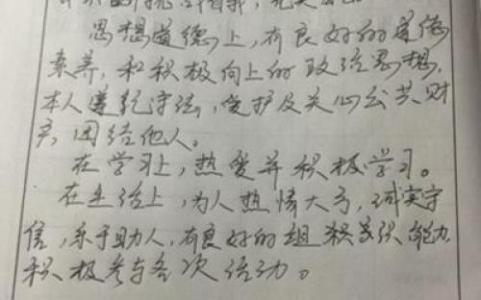 思想道德上，有良好的道德
素养，和积极向上的政治思想，
本人遵纪守法，爱护及关心公共财
产，团结他人。
在学习上，热爱并积极学习。
在生活上，为人热情大方，诚实守
信，乐于助人，有良好的组积意识能力
积极参与各次活动。